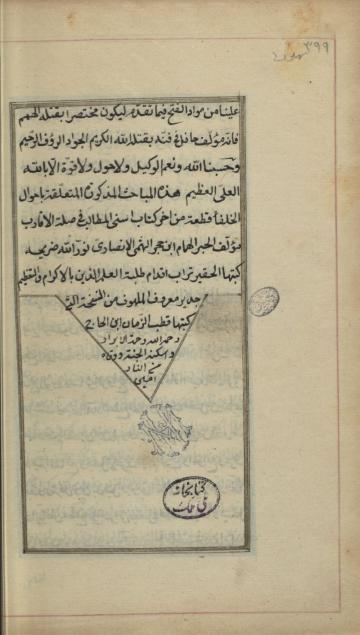 ٣٩٩
علينا من مواد الفتح فيما تقدم ليكون مختصرا بقتله الهمم
فانه مؤلف حافل في فنه بقتله الله الكريم الجواد الرؤف الرحيم
وحسبنا الله ونعم الوكيل ولاحول ولا قوة الا بالله
العلى العظيم هذه المباحث المذكورة المتعلقة باحوال
الخلفا قطعة من اخر كتاب اسنى المطالب في صلة الاقارب
مؤلف الحبر الهمام ابن حجر الهيتمى الانصارى نور الله ضريحه
كتبها الحقير تراب اقدام طلبة العلم الذين بالاكرام والتعظيم
جدير معروف الملهوف من النسخة التي
كتبها قطب الزمان ابن الحاج
رحمه الله رحمة الابرار
واسكنه الجنة ووقاه
من النار
امين
كتابخانه
ملك